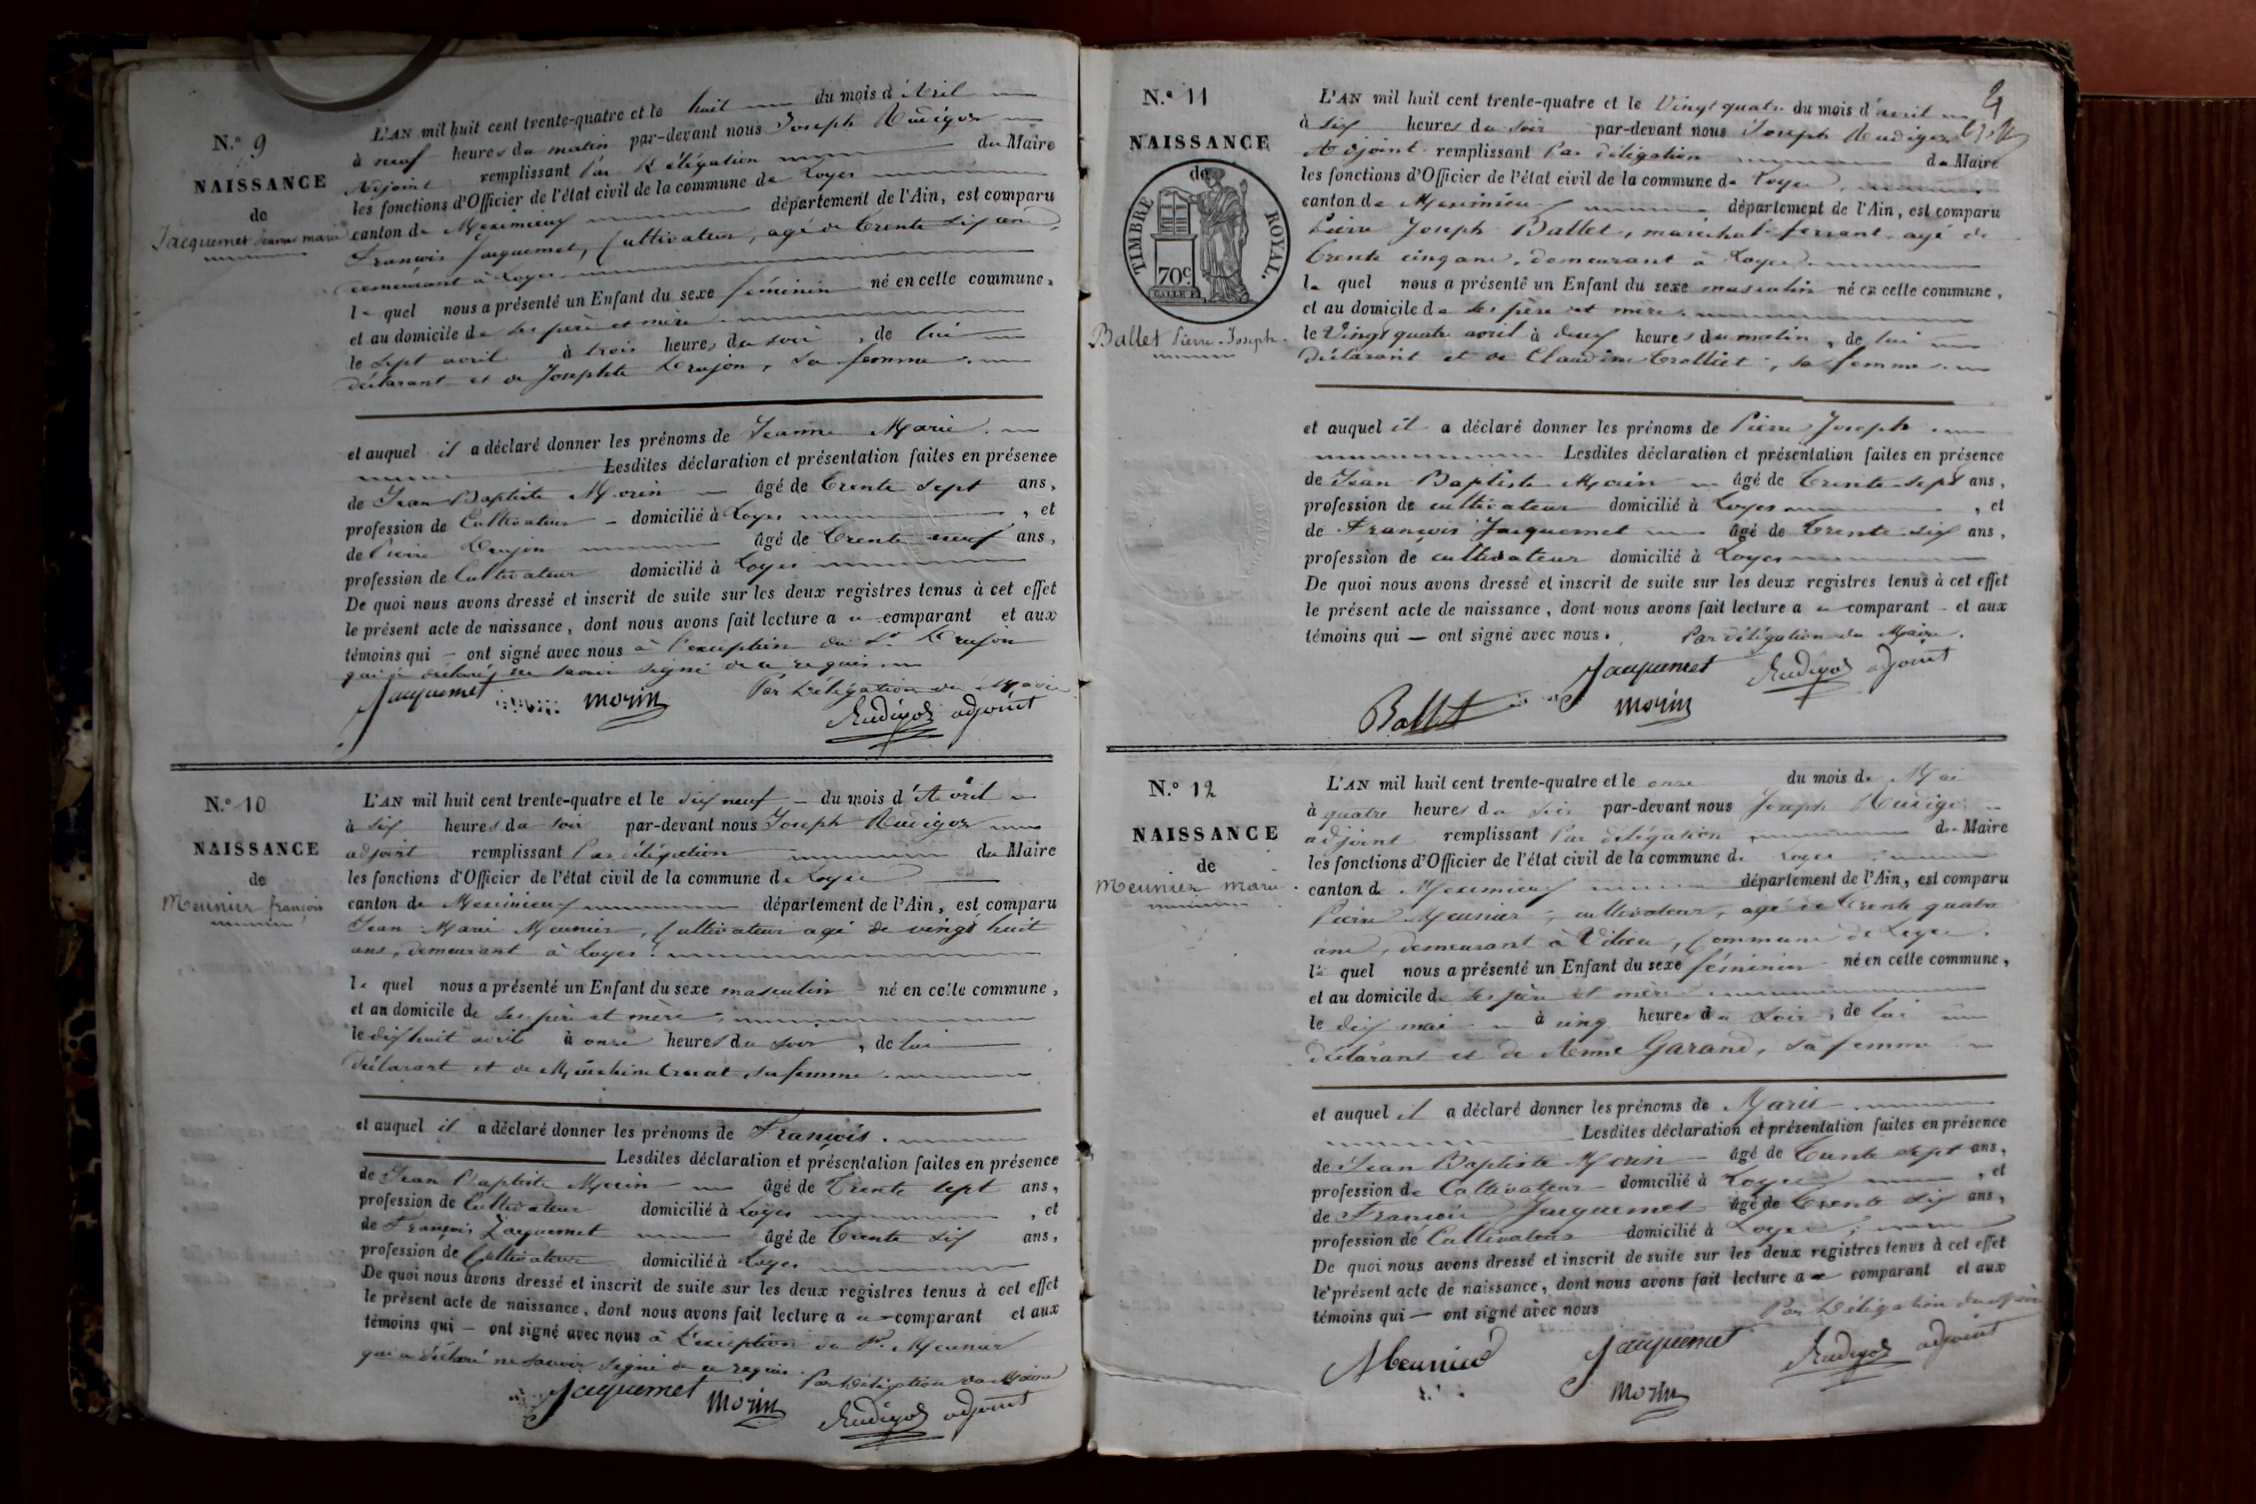 N.° 9
NAISSANCE
de
Jacquemet Jeanne marie
L'AN mil huit cent trente-quatre et le huit du mois d'Avril
à neuf heures du matin par-devant nous Joseph Rudigoz
Adjoint remplissant Par Délégation du Maire
les fonctions d'Officier de l'état civil de la commune de Loyes
canton de Meximieux département de l'Ain, est comparu
François Jacquemet, Cultivateur, agé de trente six ans,
demeurant à Loyes
le quel nous a présenté un Enfant du sexe féminin né en cette commune,
et au domicile de ses père et mère
le sept avril à trois heures du soir, de lui
déclarant et de Josephte Drujon, sa femme.
et auquel il a déclaré donner les prénoms de Jeanne Marie.
Lesdites déclaration et présentation faites en présence
de Jean Baptiste Morin âgé de trente sept ans,
profession de Cultivateur domicilié à Loyes, et
de Pierre Drujon âgé de trente neuf ans,
profession de Cultivateur domicilié à Loyes
De quoi nous avons dressé et inscrit de suite sur les deux registres tenus à cet effet
le présent acte de naissance, dont nous avons fait lecture a u comparant et aux
témoins qui — ont signé avec nous à l'exception du Sr Drujon
qui a déclaré ne savoir signé de ce requis
Jacquemet morin Par Délégation du Maire
Rudigoz adjoint
N.° 10
NAISSANCE
de
Meunier françois
L'AN mil huit cent trente-quatre et le dix neuf du mois d'Avril
à six heures du soir par-devant nous Joseph Rudigoz
adjoint remplissant Par délégation du Maire
les fonctions d'Officier de l'état civil de la commune de Loyes
canton de Meximieux département de l'Ain, est comparu
Jean Marie Meunier, Cultivateur agé de vingt huit
ans, demeurant à Loyes.
le quel nous a présenté un Enfant du sexe masculin né en cette commune,
et au domicile de ses père et mère,
le dix huit avril à onze heures du soir, de lui
déclarant et de sa femme.
et auquel il a déclaré donner les prénoms de François.
Lesdites déclaration et présentation faites en présence
de Jean Baptiste Morin âgé de trente sept ans,
profession de Cultivateur domicilié à Loyes, et
de François Jacquemet âgé de trente six ans,
profession de Cultivateur domicilié à Loyes
De quoi nous avons dressé et inscrit de suite sur les deux registres tenus à cet effet
le présent acte de naissance, dont nous avons fait lecture a u comparant et aux
témoins qui — ont signé avec nous à l'exception du Sr Meunier
qui a déclaré ne savoir signé de ce requis. Par Délégation du Maire
Jacquemet morin Rudigoz adjoint
N.° 11
NAISSANCE
de
TIMBRE ROYAL.
70c
Ballet Pierre Joseph.
L'AN mil huit cent trente-quatre et le Vingt quatre du mois d'avril
à six heures du soir par-devant nous Joseph Rudigoz
Adjoint remplissant Par délégation du Maire
les fonctions d'Officier de l'état civil de la commune de Loyes,
canton de Meximieux département de l'Ain, est comparu
Pierre Joseph Ballet, maréchal ferrant agé de
trente cinq ans, demeurant à Loyes.
le quel nous a présenté un Enfant du sexe masculin né en cette commune,
et au domicile de ses père et mère.
le Vingt quatre avril à deux heures du matin, de lui
déclarant et de Claudine trolliet, sa femme.
et auquel il a déclaré donner les prénoms de Pierre Joseph.
Lesdites déclaration et présentation faites en présence
de Jean Baptiste Morin âgé de trente sept ans,
profession de cultivateur domicilié à Loyes, et
de François Jacquemet âgé de trente six ans,
profession de cultivateur domicilié à Loyes
De quoi nous avons dressé et inscrit de suite sur les deux registres tenus à cet effet
le présent acte de naissance, dont nous avons fait lecture a u comparant et aux
témoins qui — ont signé avec nous. Par délégation du Maire.
Jacquemet Rudigoz adjoint
Ballet morin
N.° 12
NAISSANCE
de
Meunier marie.
L'AN mil huit cent trente-quatre et le onze du mois de Mai
à quatre heures du soir par-devant nous Joseph Rudigoz
adjoint remplissant Par délégation du Maire
les fonctions d'Officier de l'état civil de la commune de Loyes
canton de Meximieux département de l'Ain, est comparu
Pierre Meunier, cultivateur, agé de trente quatre
ans, demeurant à Vilieu, Commune de Loyes.
le quel nous a présenté un Enfant du sexe féminin né en cette commune,
et au domicile de ses père et mère
le dix mai à cinq heures du soir, de lui
déclarant et de Anne Garand, sa femme
et auquel il a déclaré donner les prénoms de Marie
Lesdites déclaration et présentation faites en présence
de Jean Baptiste Morin âgé de trente sept ans,
profession de Cultivateur domicilié à Loyes, et
de François Jacquemet âgé de trente six ans,
profession de Cultivateur domicilié à Loyes,
De quoi nous avons dressé et inscrit de suite sur les deux registres tenus à cet effet
le présent acte de naissance, dont nous avons fait lecture a u comparant et aux
témoins qui — ont signé avec nous Par Délégation du Maire
Meunier Jacquemet Rudigoz adjoint
morin